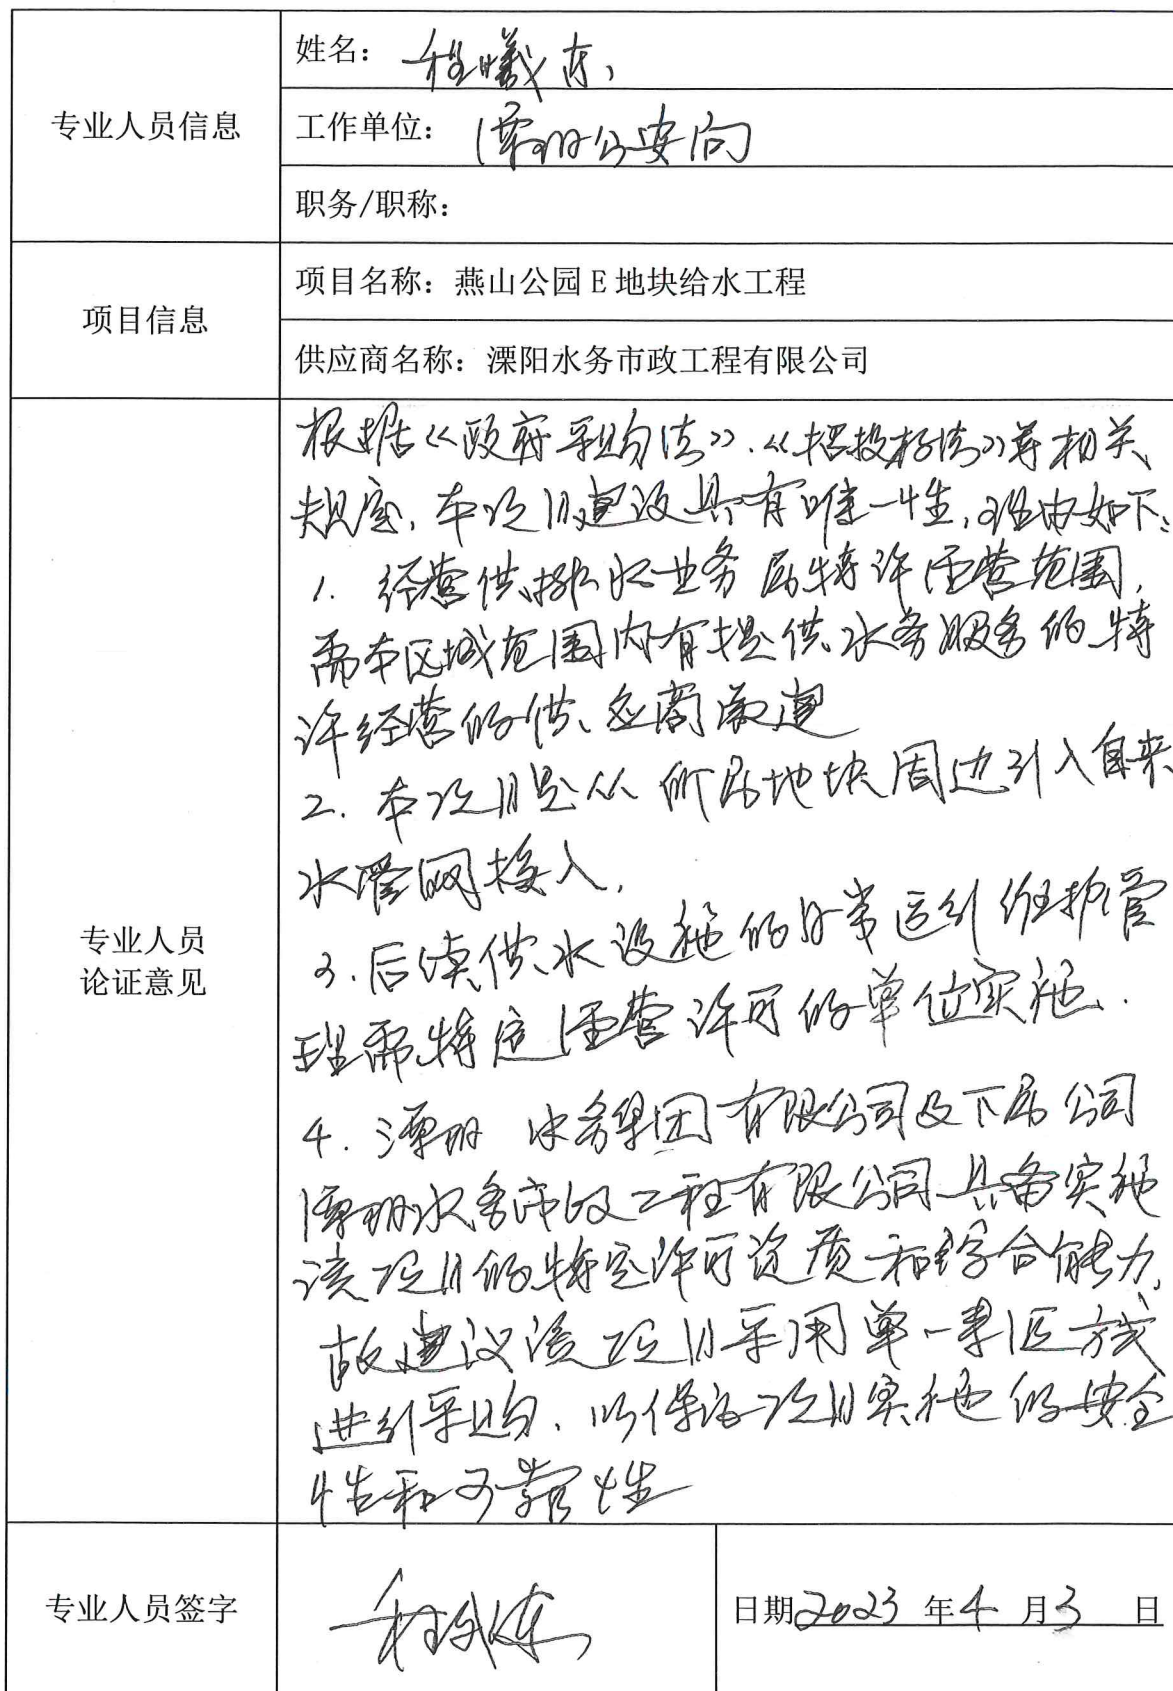 专业人员信息
姓名：程曦东
工作单位：溧阳公安局
职务/职称：
项目信息
项目名称：燕山公园E地块给水工程
供应商名称：溧阳水务市政工程有限公司
专业人员
论证意见
根据《政府采购法》、《招投标法》等相关
规定，本项目建设具有唯一性，理由如下：
1. 经营供排水业务属特许经营范围，
而本区域范围内有提供水务服务的特
许经营的供应商
2. 本项目是从所属地块周边引入自来
水管网接入，
3. 后续供水设施的日常运行维护管
理需特定经营许可的单位实施．
4. 溧阳水务集团有限公司及下属公司
溧阳水务市政工程有限公司具备实施
该项目的特定许可资质和综合能力，
故建议该项目采用单一来源方式
进行采购，以保证项目实施的安全
性和可靠性
专业人员签字
日期2023年4月3日